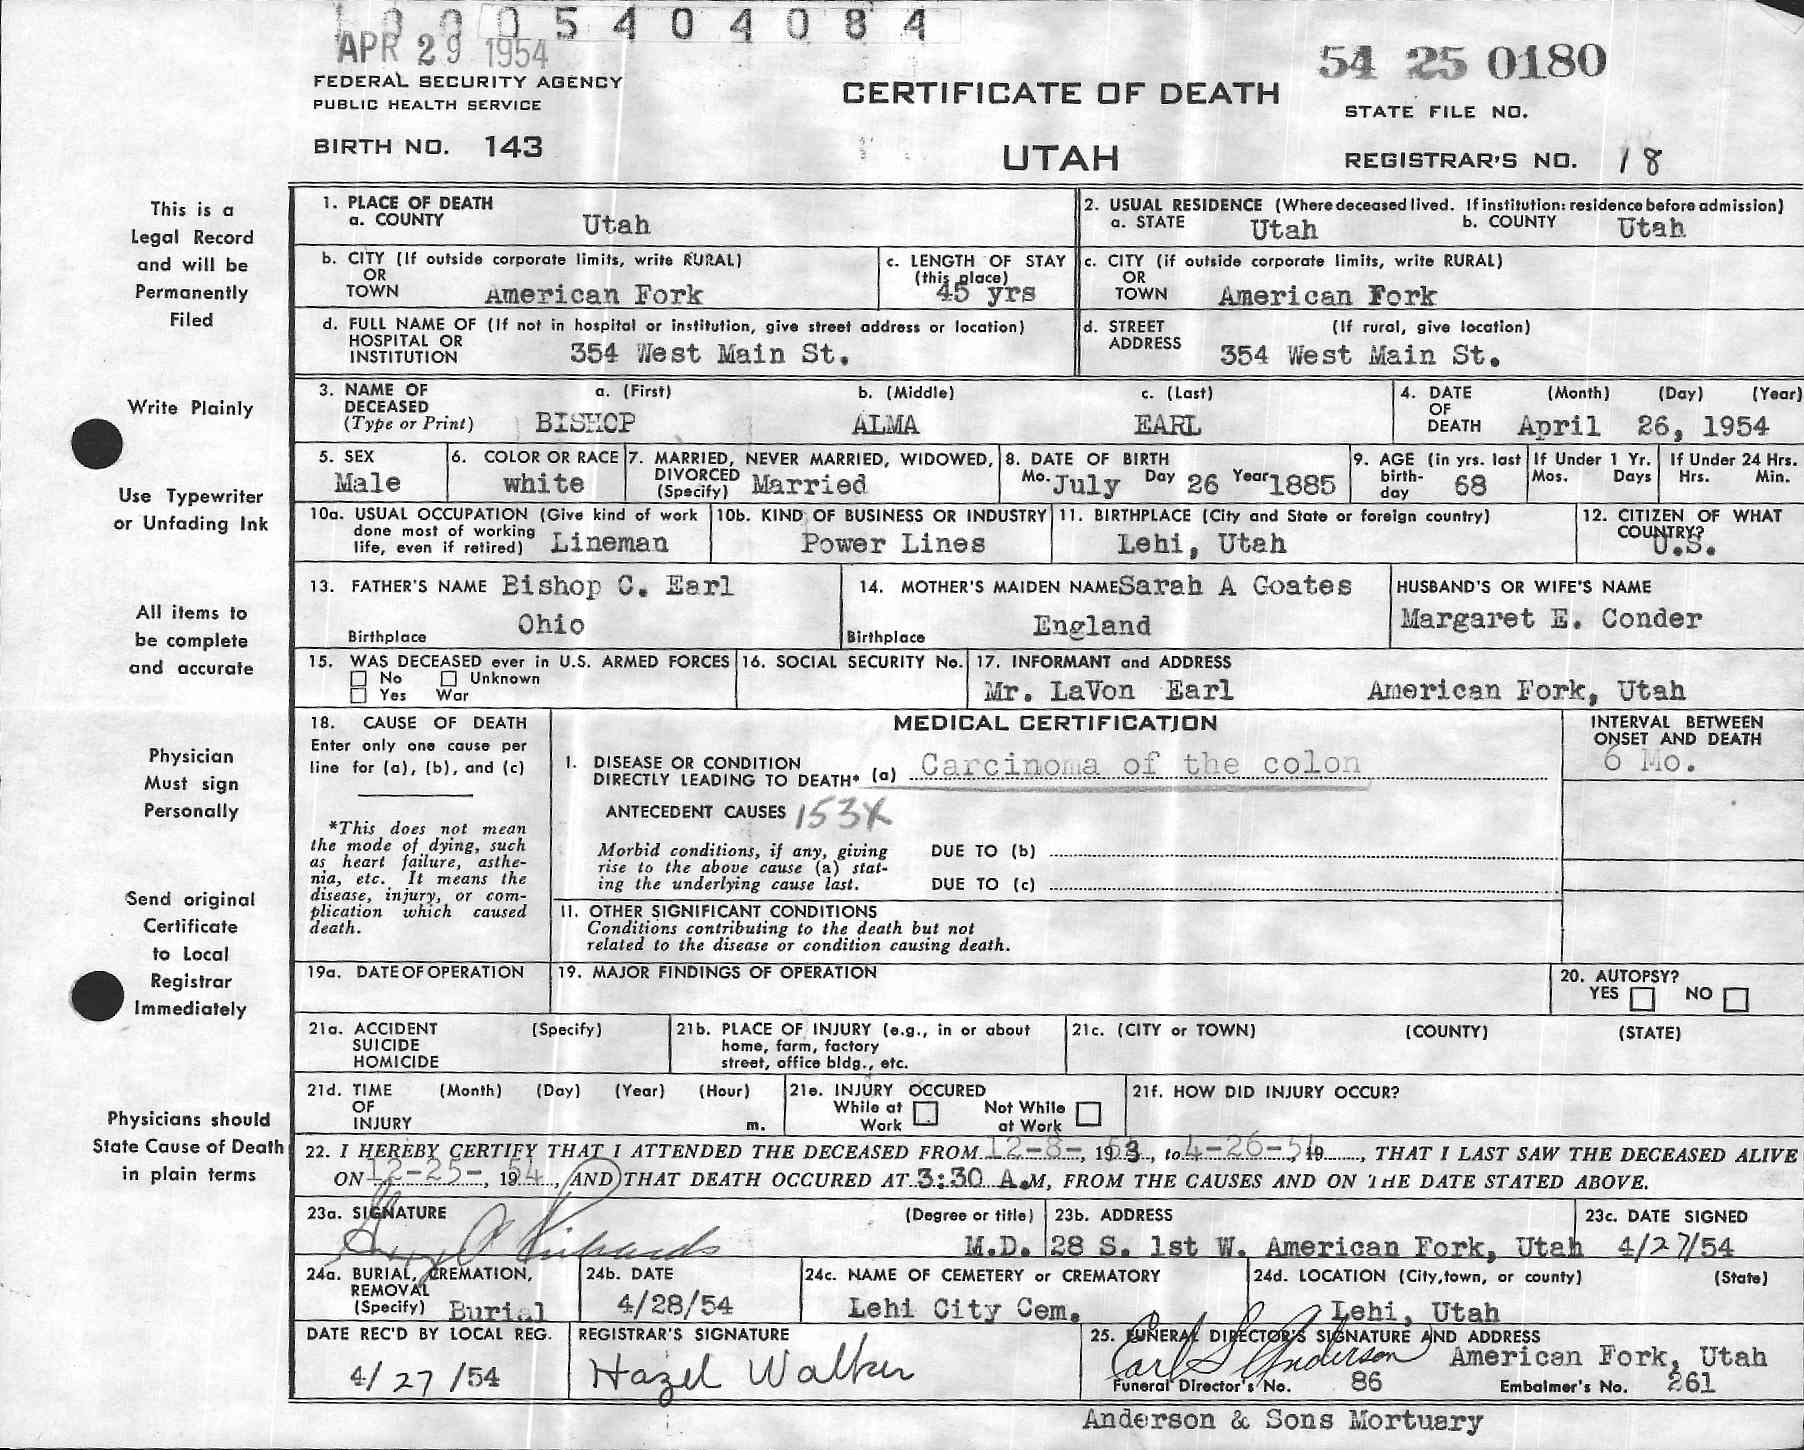 1 0 0 0 5 4 0 4 0 8 4
APR 29 1954
54 25 0180
FEDERAL SECURITY AGENCY
PUBLIC HEALTH SERVICE
CERTIFICATE OF DEATH
STATE FILE NO.
BIRTH NO. 143
UTAH
REGISTRAR'S NO. 18
This is a
Legal Record
and will be
Permanently
Filed
Write Plainly
Use Typewriter
or Unfading Ink
All items to
be complete
and accurate
Physician
Must sign
Personally
Send original
Certificate
to Local
Registrar
Immediately
Physicians should
State Cause of Death
in plain terms
1. PLACE OF DEATH
a. COUNTY Utah
2. USUAL RESIDENCE (Where deceased lived. If institution: residence before admission)
a. STATE Utah b. COUNTY Utah
b. CITY (If outside corporate limits, write RURAL)
OR
TOWN American Fork
c. LENGTH OF STAY
(this place)
45 yrs
c. CITY (if outside corporate limits, write RURAL)
OR
TOWN American Fork
d. FULL NAME OF (If not in hospital or institution, give street address or location)
HOSPITAL OR
INSTITUTION 354 West Main St.
d. STREET (If rural, give location)
ADDRESS 354 West Main St.
3. NAME OF a. (First) b. (Middle) c. (Last)
DECEASED
(Type or Print) BISHOP ALMA EARL
4. DATE (Month) (Day) (Year)
OF
DEATH April 26, 1954
5. SEX
Male
6. COLOR OR RACE
white
7. MARRIED, NEVER MARRIED, WIDOWED,
DIVORCED
(Specify) Married
8. DATE OF BIRTH
Mo. July Day 26 Year 1885
9. AGE (in yrs. last
birth-
day 68
If Under 1 Yr.
Mos. Days
If Under 24 Hrs.
Hrs. Min.
10a. USUAL OCCUPATION (Give kind of work
done most of working
life, even if retired) Lineman
10b. KIND OF BUSINESS OR INDUSTRY
Power Lines
11. BIRTHPLACE (City and State or foreign country)
Lehi, Utah
12. CITIZEN OF WHAT
COUNTRY?
U.S.
13. FATHER'S NAME Bishop C. Earl
Birthplace Ohio
14. MOTHER'S MAIDEN NAME Sarah A Goates
Birthplace England
HUSBAND'S OR WIFE'S NAME
Margaret E. Conder
15. WAS DECEASED ever in U.S. ARMED FORCES
No Unknown
Yes War
16. SOCIAL SECURITY No.
17. INFORMANT and ADDRESS
Mr. LaVon Earl American Fork, Utah
18. CAUSE OF DEATH
Enter only one cause per
line for (a), (b), and (c)
*This does not mean
the mode of dying, such
as heart failure, asthe-
nia, etc. It means the
disease, injury, or com-
plication which caused
death.
MEDICAL CERTIFICATION
I. DISEASE OR CONDITION
DIRECTLY LEADING TO DEATH* (a) Carcinoma of the colon
ANTECEDENT CAUSES 153X
Morbid conditions, if any, giving
rise to the above cause (a) stat-
ing the underlying cause last.
DUE TO (b)
DUE TO (c)
II. OTHER SIGNIFICANT CONDITIONS
Conditions contributing to the death but not
related to the disease or condition causing death.
INTERVAL BETWEEN
ONSET AND DEATH
6 Mo.
19a. DATE OF OPERATION
19. MAJOR FINDINGS OF OPERATION
20. AUTOPSY?
YES NO
21a. ACCIDENT (Specify)
SUICIDE
HOMICIDE
21b. PLACE OF INJURY (e.g., in or about
home, farm, factory
street, office bldg., etc.
21c. (CITY or TOWN) (COUNTY) (STATE)
21d. TIME (Month) (Day) (Year) (Hour)
OF
INJURY m.
21e. INJURY OCCURED
While at Work Not While at Work
21f. HOW DID INJURY OCCUR?
22. I HEREBY CERTIFY THAT I ATTENDED THE DECEASED FROM 12-8-, 1953, to 4-26-54 19, THAT I LAST SAW THE DECEASED ALIVE
ON 12-25-, 1954, AND THAT DEATH OCCURED AT 3:30 A.M, FROM THE CAUSES AND ON THE DATE STATED ABOVE.
23a. SIGNATURE (Degree or title)
Richards M.D.
23b. ADDRESS
28 S. 1st W. American Fork, Utah
23c. DATE SIGNED
4/27/54
24a. BURIAL, CREMATION,
REMOVAL
(Specify) Burial
24b. DATE
4/28/54
24c. NAME OF CEMETERY or CREMATORY
Lehi City Cem.
24d. LOCATION (City, town, or county) (State)
Lehi, Utah
DATE REC'D BY LOCAL REG.
4/27/54
REGISTRAR'S SIGNATURE
Hazel Walker
25. FUNERAL DIRECTOR'S SIGNATURE AND ADDRESS
Earl S Anderson American Fork, Utah
Funeral Director's No. 86 Embalmer's No. 261
Anderson & Sons Mortuary